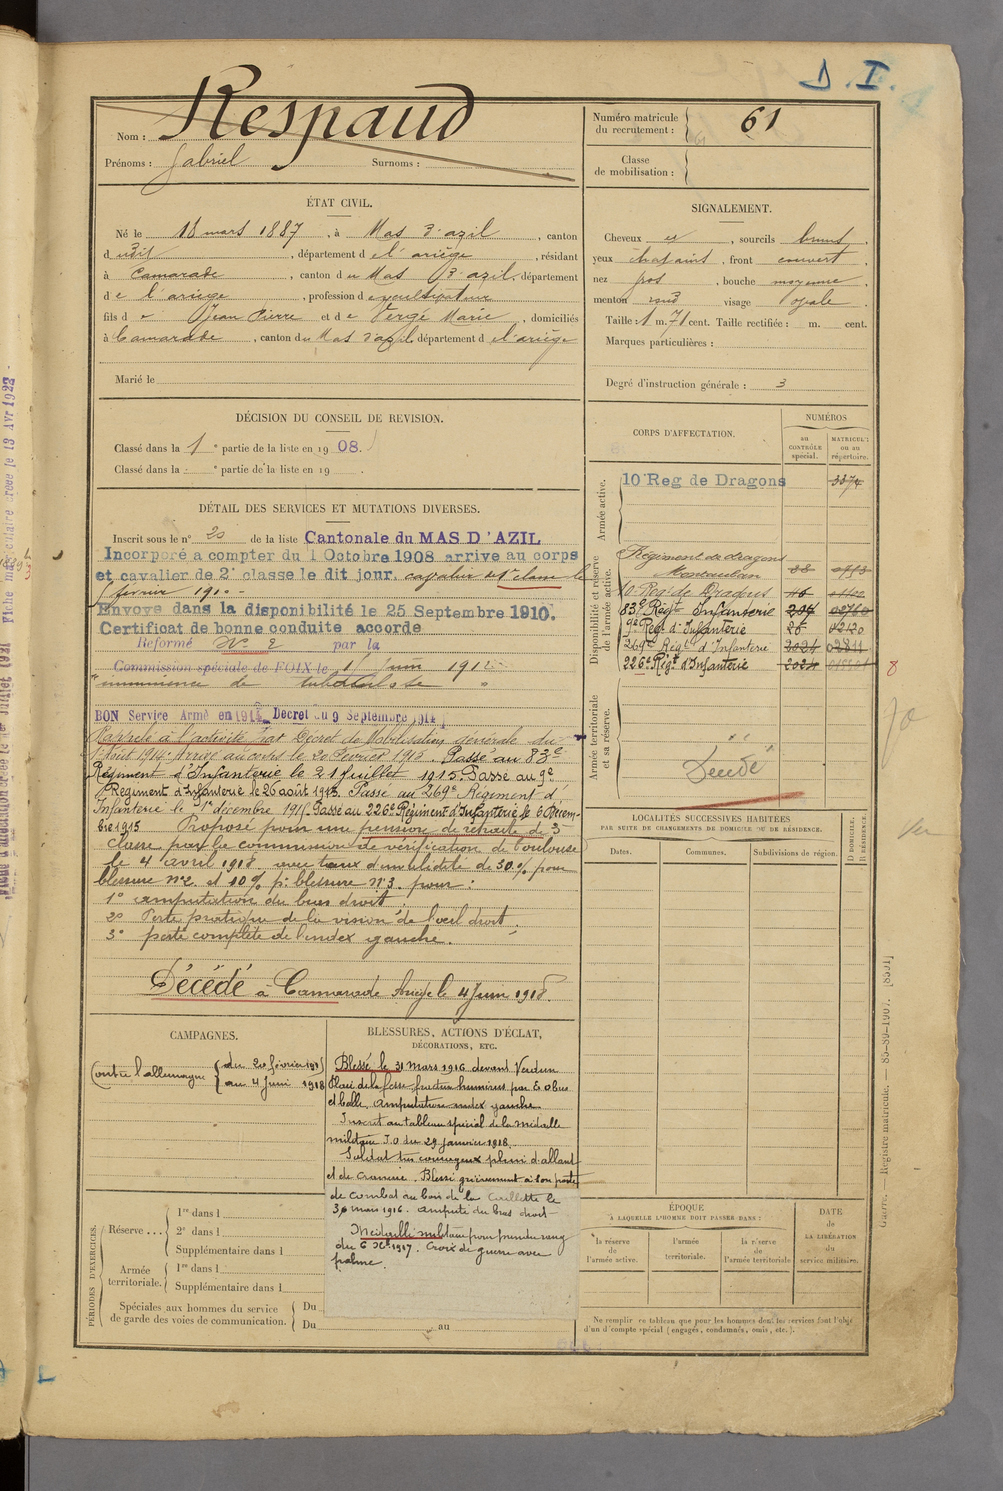 D. I.
Nom : Respaud
Prénoms : Gabriel Surnoms :
Numéro matricule du recrutement : 61
Classe de mobilisation :
ÉTAT CIVIL.
Né le 18 mars 1887, à Mas d'azil, canton
dudit, département de l'ariège, résidant
à Camarade, canton du Mas d'azil, département
de l'ariege, profession de cultivateur
fils de Jean Pierre et de Vergé Marie, domiciliés
à Camarade, canton du Mas d'azil, département de l'ariége
Marié le
SIGNALEMENT.
Cheveux et, sourcils bruns,
yeux chatains, front couvert,
nez gos, bouche moyenne,
menton rond visage ovale.
Taille : 1 m. 71 cent. Taille rectifiée : m. cent.
Marques particulières :
Degré d'instruction générale : 3
DÉCISION DU CONSEIL DE REVISION.
Classé dans la 1e partie de la liste en 1908.
Classé dans la e partie de la liste en 19 .
DÉTAIL DES SERVICES ET MUTATIONS DIVERSES.
Inscrit sous le n° 20 de la liste Cantonale du MAS D'AZIL
Incorporé a compter du 1 Octobre 1908 arrive au corps
et cavalier de 2e classe le dit jour. cavalier de 1e classe le
février 1910 -
Envoye dans la disponibilité le 25 Septembre 1910.
Certificat de bonne conduite accorde
Réformé N° 2 par la
Commission spéciale de FOIX le 1 Juin 191
imminence de tuberculose
BON Service Armé en 1914 Decret du 9 Septembre 1914
Rappelé à l'activité Par Décret de Mobilisation générale du
1 Août 1914. Arrivé au corps le 20 Février 1915. Passé au 83e
Régiment d'Infanterie le 21 juillet 1915. Passé au 9e
Régiment d'Infanterie le 26 août 1915. Passé au 269e Régiment d'
Infanterie le 1er décembre 1915. Passé au 226e Régiment d'Infanterie le 6 Décem-
bre 1915 Proposé pour une pension de retraite de 5e
classe par la commission de vérification de Toulouse
le 4 avril 1918 avec taux d'invalidité de 30 % pour
blessure n°2 et 10 % p: blessure n°3. pour :
1° amputation du bras droit.
2° Perte pratique de la vision de l'oeil droit.
3° perte complète de l'index gauche.
Décédé à Camarade Ariège le 4 Juin 1918.
CORPS D'AFFECTATION.
NUMÉROS
au CONTRÔLE spécial.
MATRICULE ou au répertoire.
Armée active.
10e Reg de Dragons 3374
Disponibilité et réserve de l'armée active.
Régiment de dragons
Montauban
10 Reg. de Dragons
83e Regt Infanterie
9e Reg. d'Infanterie
269e Regt d'Infanterie
226e Regt d'Infanterie
8
Armée territoriale et sa réserve.
Décédé
LOCALITÉS SUCCESSIVES HABITÉES
PAR SUITE DE CHANGEMENTS DE DOMICILE OU DE RÉSIDENCE.
Dates. Communes. Subdivisions de région. D DOMICILE. R RÉSIDENCE.
CAMPAGNES.
Contre l'allemagne
du 20 février 1915
au 4 Juin 1918
BLESSURES, ACTIONS D'ÉCLAT,
DÉCORATIONS, ETC.
Blessé le 31 mars 1916 devant Verdun
Plaie de la fesse fracture humérus par E. Obus
et balle. Amputation index gauche
Inscrit au tableau spécial de la médaille
militaire J.O. du 29 janvier 1918.
Soldat très courageux plein d'allant
et de cranerie. Blessé grièvement à son poste
de combat au bois de la Caillette le
30 mars 1916. amputé du bras droit-
Médaille militaire pour prendre rang
du 6 Xbre 1917. Croix de guerre avec
palme.
PÉRIODES D'EXERCICES.
Réserve... 1re dans l
2e dans l
Supplémentaire dans l
Armée territoriale. 1re dans l
Supplémentaire dans l
Spéciales aux hommes du service de garde des voies de communication. Du
Du au
ÉPOQUE
À LAQUELLE L'HOMME DOIT PASSER DANS :
la réserve de l'armée active.
l'armée territoriale.
la réserve de l'armée territoriale
DATE DE LA LIBÉRATION du service militaire.
Ne remplir ce tableau que pour les hommes dont les services font l'objet
d'un décompte spécial (engagés, condamnés, omis, etc.).
Guerre. Registre matricule. — 85-80-1907. [8591]